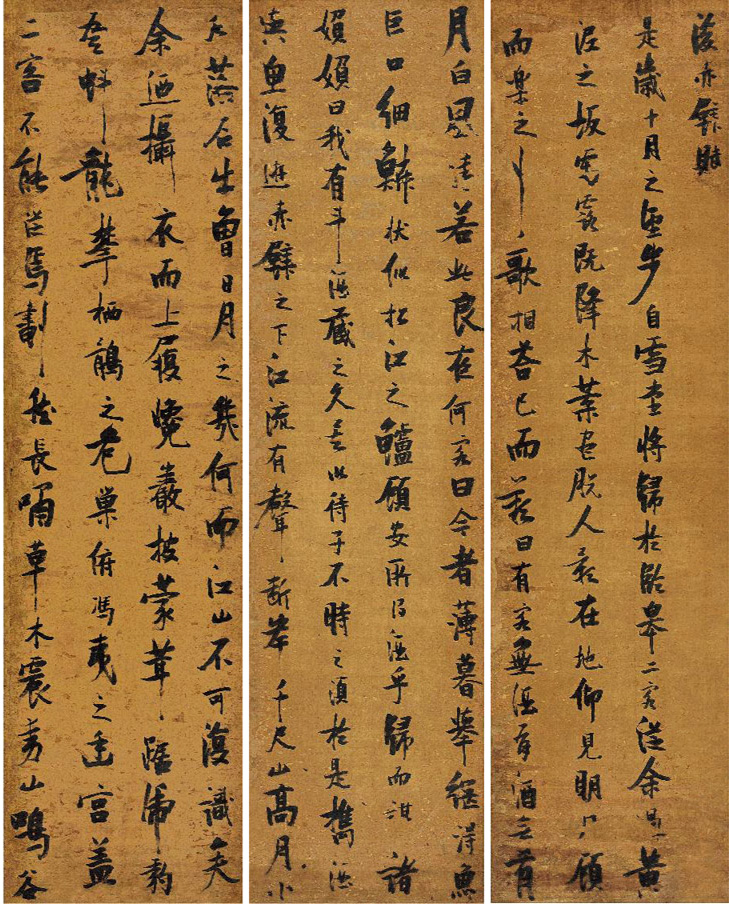 後赤壁賦
是歲十月之望步自雪堂將歸於臨皋二客從余過黃
泥之坂霜露既降木葉盡脫人影在地仰見明月顧
而樂之行歌相荅已而嘆曰有客無酒有酒無肴
月白風清若此良夜何客曰今者薄暮舉網得魚
巨口細鱗狀似松江之鱸顧安所得酒乎歸而謀諸
婦婦曰我有斗酒藏之久矣以待子不時之須於是攜酒
與魚復遊赤壁之下江流有聲斷岸千尺山高月小
水落石出曾日月之幾何而江山不可復識矣
余迺攝衣而上履巉巖披蒙茸踞虎豹
登虯龍攀栖鶻之危巢俯馮夷之幽宮蓋
二客不能從焉劃然長嘯草木震動山鳴谷